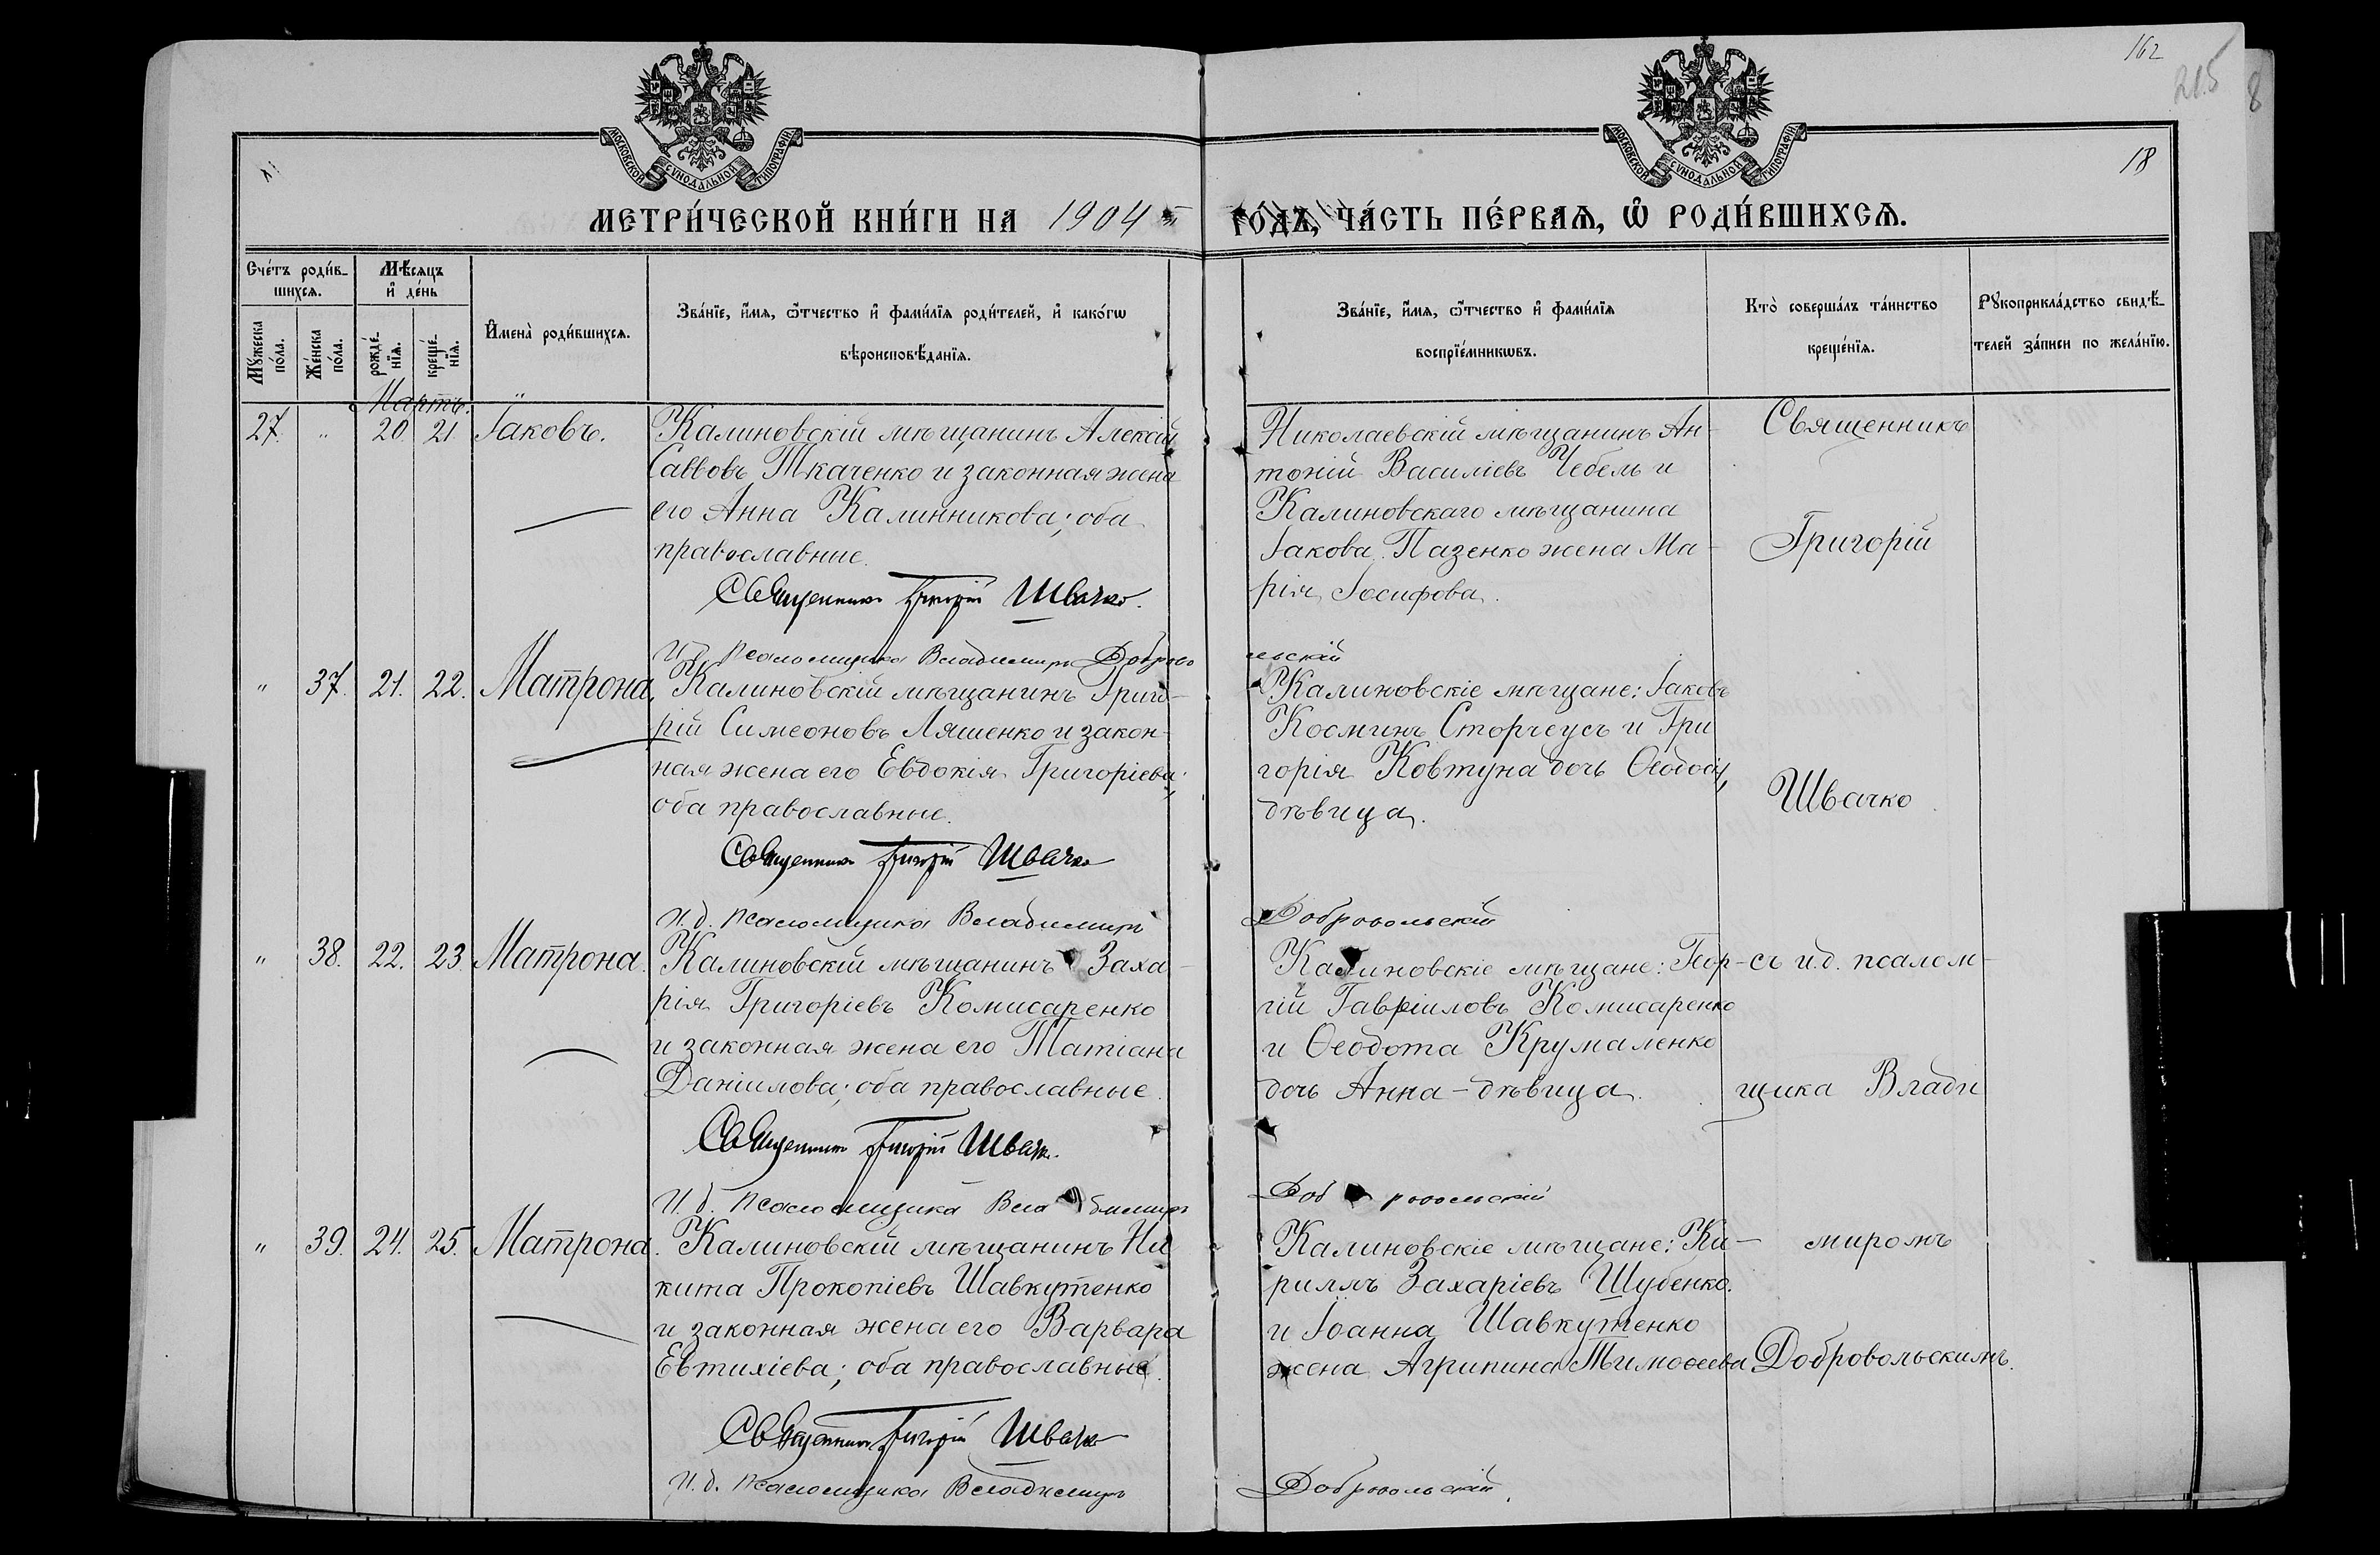 162
215
8
18
МОСКОВСКОЙ СѴНОДАЛЬНОЙ ТИПОГРАФІИ
МОСКОВСКОЙ СѴНОДАЛЬНОЙ ТИПОГРАФІИ
МЕТРИ́ЧЕСКОЙ КНИ́ГИ НА 1904 ГО́ДЪ, ЧА́СТЬ ПЕ́РВАѦ, Ѡ҆ РОДИ́ВШИХСѦ.
Сче́тъ роди́в-
шихсѧ.
Мꙋ́жеска по́ла.
Же́нска по́ла.
Мѣ́сѧцъ
и҆ де́нь
рожде́-
нїѧ.
креще́-
нїѧ.
И҆мена̀ роди́вшихсѧ.
Зва́нїе, и҆́мѧ, ѻ҆́тчество и҆ фами́лїѧ роди́телей, и҆ како́гѡ
вѣроисповѣ́данїѧ.
Зва́нїе, и҆́мѧ, ѻ҆́тчество и҆ фами́лїѧ
воспрїе́мникѡвъ.
Кто̀ соверша́лъ та́инство
креще́нїѧ.
Рꙋкоприкла́дство свидѣ́-
телей за́писи по жела́нїю.
Мартъ.
27. " 20. 21. Іаковъ.
Калиновскій мѣщанинъ Алексій
Саввовъ Ткаченко и законная жена
его Анна Калинникова; оба
православные.
Священникъ Григорій Швачко.
И. д. псаломщика Владимиръ Добровольскій
Николаевскій мѣщанинъ Ан-
тоній Василіевъ Чебель и
Калиновскаго мѣщанина
Іакова Пазенко жена Ма-
рія Іосифова.
" 37. 21. 22. Матрона.
Калиновскій мѣщанинъ Григо-
рій Симеоновъ Ляшенко и закон-
ная жена его Евдокія Григоріева;
оба православные.
Священникъ Григорій Швачко
И. д. псаломщика Владимиръ Добровольскій
Калиновскіе мѣщане: Іаковъ
Косминъ Сторчеусъ и Гри
горія Ковтуна дочь Ѳеодосія,
дѣвица.
" 38. 22. 23. Матрона.
Калиновскій мѣщанинъ Заха-
рія Григоріевъ Комисаренко
и законная жена его Татіана
Даніилова; оба православные.
Священникъ Григорій Швачко.
И. д. псаломщика Владимиръ Добровольскій
Калиновскіе мѣщане: Геор-
гій Гавріиловъ Комисаренко
и Ѳеодота Крумаленко
дочь Анна - дѣвица.
" 39. 24. 25. Матрона.
Калиновскій мѣщанинъ Ни
кита Прокопіевъ Шавкутенко
и законная жена его Варвара
Евтихіева; оба православные.
Священникъ Григорій Швачко
И. д. псаломщика Владимиръ Добровольскій.
Калиновскіе мѣщане: Ки-
риллъ Захаріевъ Шубенко
и Іоанна Шавкутенко
жена Агрипина Тимоѳеева
Священникъ
Григорій
Швачко
съ и.д. псалом-
щика Влади
миромъ
Добровольскимъ.